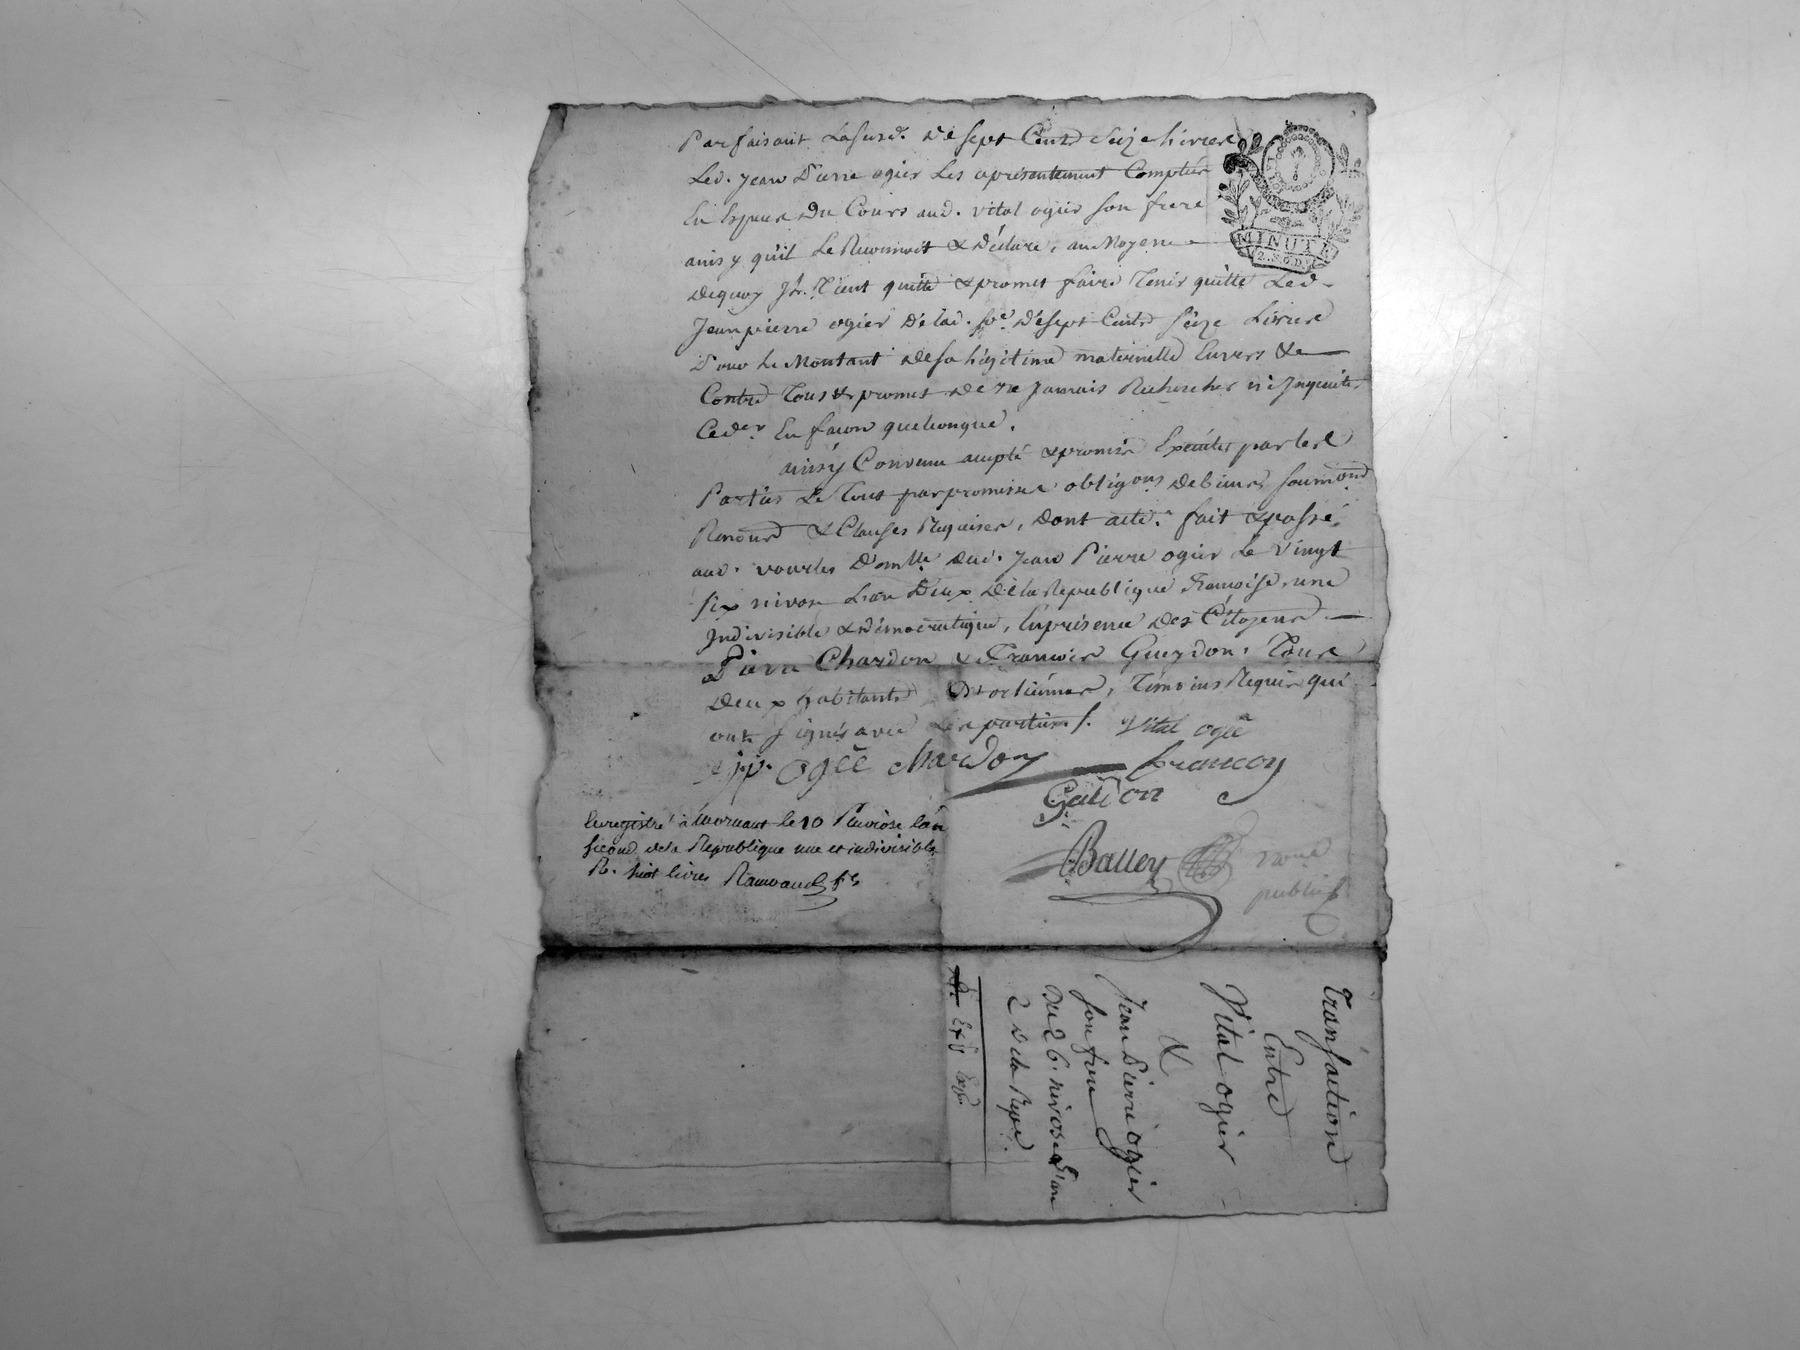 Parfaisant Lasusd. de sept Cents Seize Livres
Led. Jean Pierre ogier Les apresentement Comptés
En Espece du Cours aud. vital ogier son frere
ainsy qu'il Le Reconnoit & Déclare, au Moyene
dequoy Il. Tient quitte & promet faire Tenir quitte Led.
Jeanpierre ogier de lad. so.e de sept Cents Seize Livres
Pour Le Montant de sa Légitime maternelle Envers &
Contre Tous & promet de ne Jamais Rechercher ni Inquieter
Ced.er En facon quelconque.
ainsy Convenu accepté & promis Executer par les
Parties Le Tout par promisse obligons. de biens soumond.
Renond & Clauses Requises, Dont acte. fait & passé.
aud. vourles Domlle dud. Jean Pierre ogier Le Vingt
six nivose L'an Deux de la Republique Francoise une
Indivisible & démocratique, En présence des Citoyens
Pierre Chardon & Francois Gueydon. Tous
Deux habitants d'orlienas, Témoins Requis qui
ont signés avec Les parties /. Vital ogié
jp. ogié chardon francoy
Gaidon
Enregistré à Mornant le 10 Pluviose l'an
second de la Republique une et indivisible
R. huit livres
Balley
public
MINUTE
2. S. 6 D.
Transaction
Entre
Vital ogier
&
Jean Pierre ogier
son frere
Du 26. nivose L'an
2 de la Repu.